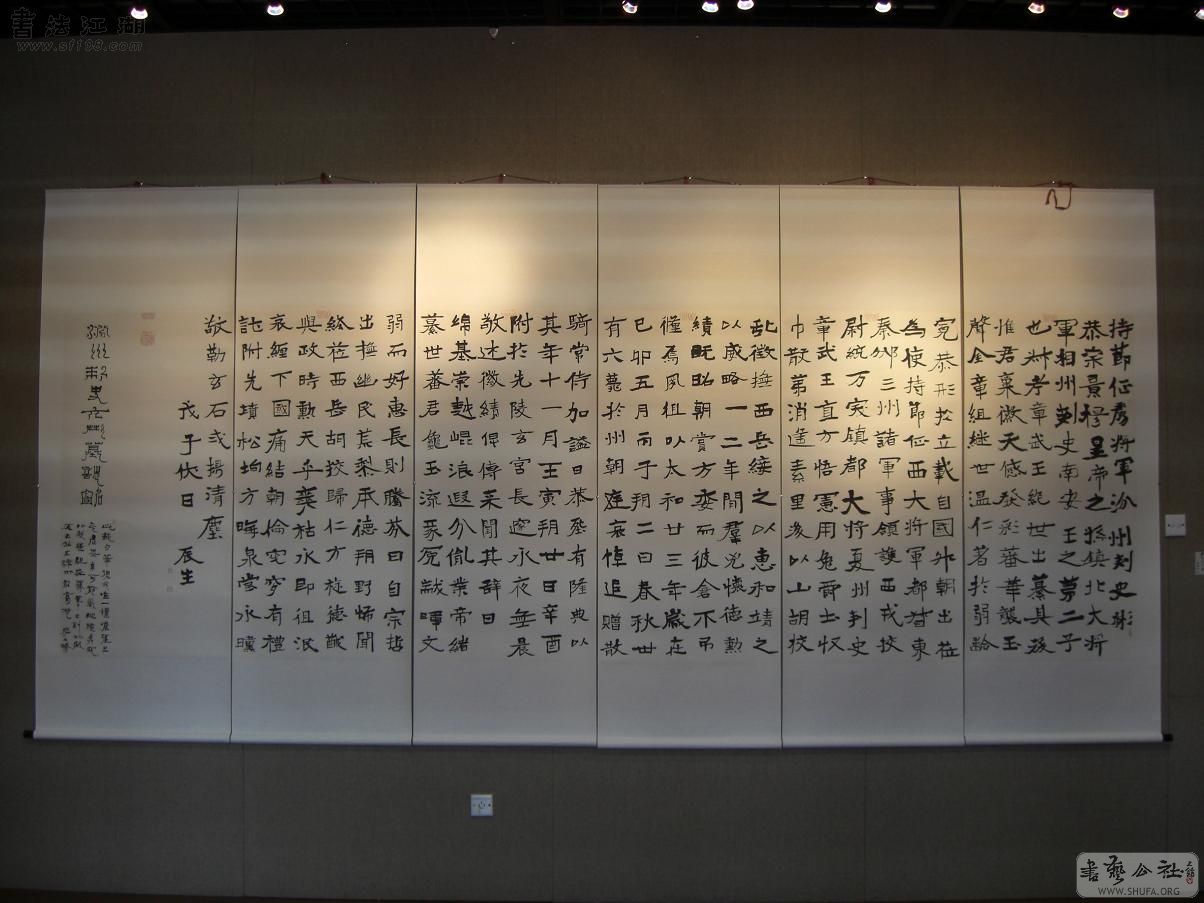 持節征虜將軍汾州刺史彬
恭宗景穆皇帝之孫鎮北大將
軍相州刺史南安王之第二子
也叔考章武王絕世出纂其後
惟君稟徽天感發彩蕃華襲玉
聲金章組繼世溫仁著於弱齡
寬恭形於立載自國升朝出莅
為使持節征西大將軍都督東
秦豳三州諸軍事領護西戎校
尉統万突鎮都大將夏州刺史
章武王直方悟憲用免爵土收
巾散第消遙素里後以山胡校
乱徵撫西岳綏之以惠和靖之
以威略一二年間羣兇懷德勳
績既昭朝賞方委而彼倉不弔
殲焉夙徂以太和廿三年歲在
己卯五月丙子朔二日春秋卅
有六薨於州朝廷哀悼追贈散
騎常侍加謚曰恭塟有隆典以
其年十一月壬寅朔廿日辛酉
附於先陵玄宮長邃永夜無晨
敬述徽績俾傳來聞其辭曰
綿基崇越崐浪遐分胤業帝緒
纂世蕃君龜玉流彖冕黻暉文
弱而好惠長則騰芬曰自宗哲
出撫幽民荒梨承德朔野怖聞
終莅西岳胡狡歸仁方旌德猷
與政時勳天乎莫祜永即徂泯
哀絰下國痛結朝倫窀穸有禮
託附先墳松坰方晦泉堂永曛
敬勒玄石或揚清塵
戊子伏日 辰生
汾州刺史元彬墓誌銘
書法江湖
www.sf108.com
書藝公社
WWW.SHUFA.ORG